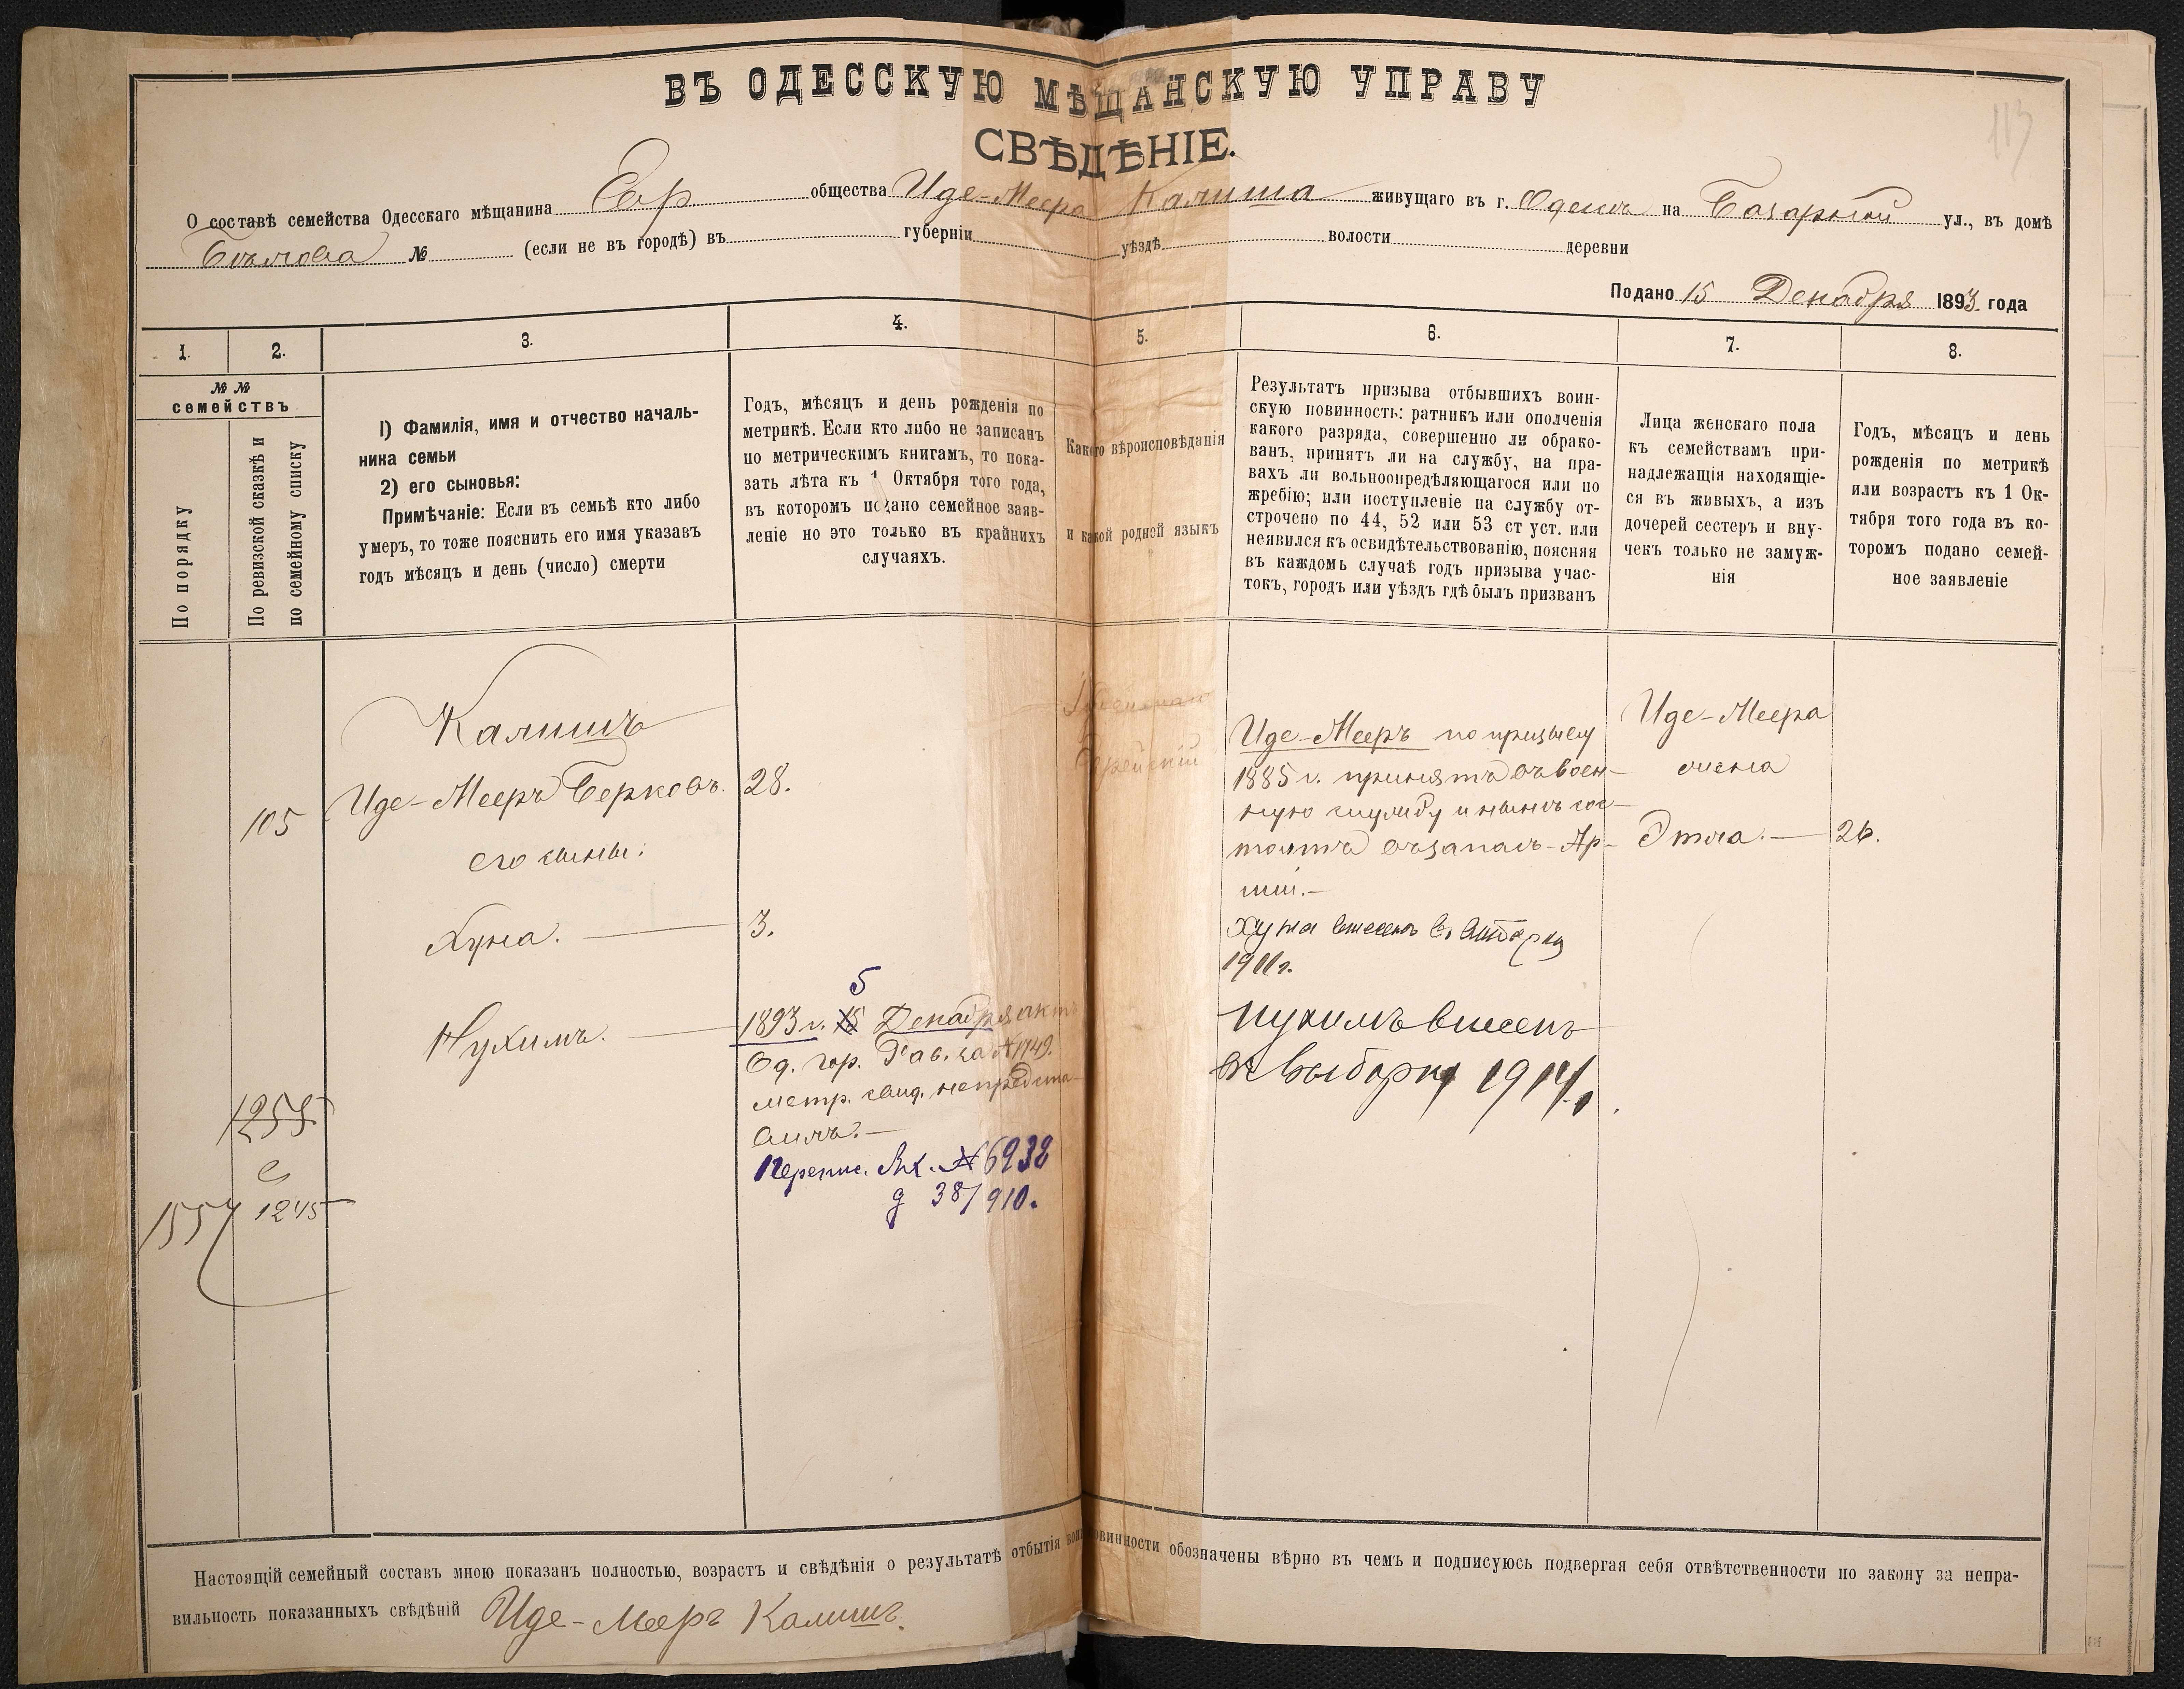 ВЪ ОДЕССКУЮ МѢЩАНСКУЮ УПРАВУ
СВѢДѢНІЕ.
113
О составѣ семейства Одесскаго мѣщанина Евр. общества Иде-Меера Калиша живущаго въ г. Одессѣ на Базарной ул., въ домѣ
№ (если не въ городѣ) въ губерніи уѣздѣ волости деревни
Подано 15 Декабря 1893 года
1.
2.
3.
4.
5.
6.
7.
8.
№ №
семействъ
По порядку
По ревизской сказкѣ и
по семейному списку
1) Фамилія, имя и отчество началь-
ника семьи
2) его сыновья:
Примѣчаніе: Если въ семьѣ кто либо
умеръ, то тоже пояснить его имя указавъ
годъ мѣсяцъ и день (число) смерти
Годъ, мѣсяцъ и день рожденія по
метрикѣ. Если кто либо не записанъ
по метрическимъ книгамъ, то пока-
зать лѣта къ 1 Октября того года,
въ которомъ подано семейное заяв-
леніе но это только въ крайнихъ
случаяхъ.
Какого вѣроисповѣданія
и какой родней языкъ
Результатъ призыва отбывшихъ воин-
скую повинность: ратникъ или ополченія
какого разряда, совершенно ли обрако-
ванъ, принятъ ли на службу, на пра-
вахъ ли вольноопредѣляющагося или по
жребію; или поступленіе на службу от-
строчено по 44, 52 или 53 ст уст. или
неявился къ освидѣтельствованію, поясняя
въ каждомъ случаѣ годъ призыва учас-
токъ, городъ или уѣздъ гдѣ былъ призванъ
Лица женскаго пола
къ семействамъ при-
надлежащія находящіе-
ся въ живыхъ, а изъ
дочерей сестеръ и вну-
чекъ только не замуж-
нія
Годъ, мѣсяцъ и день
рожденія по метрикѣ
или возрастъ къ 1 Ок-
тября того года въ ко-
торомъ подано семей-
ное заявленіе
Калишъ
105
Иде-Мееръ Берковъ.
28.
его сыны:
Хуна.
3.
Нухимъ.
5
1893 г. 15 Декабря актъ
Од. гор. Рав. за № 1749.
метр. свид. непредста-
вилъ.—
Перепис. Вх. № 6932
д 38/910.
1255
с
1557 1245
Іудейскаго
Еврейскій
Иде-Мееръ по призыву
1885 г. принятъ въ воен-
ную службу и нынѣ сос-
тоитъ въ запасѣ Ар-
міи.—
Хуна внесенъ въ выборку
1911 г.
Нухимъ внесенъ
въ выборку 1914 г.
Иде-Меера
жена
Этля.— 26.
Настоящій семейный составъ мною показанъ полностью, возрастъ и свѣдѣнія о результатѣ отбытія воин. повинности обозначены вѣрно въ чемъ и подписуюсь подвергая себя отвѣтственности по закону за непра-
вильность показанныхъ свѣдѣній Иде-Мееръ Калишъ.